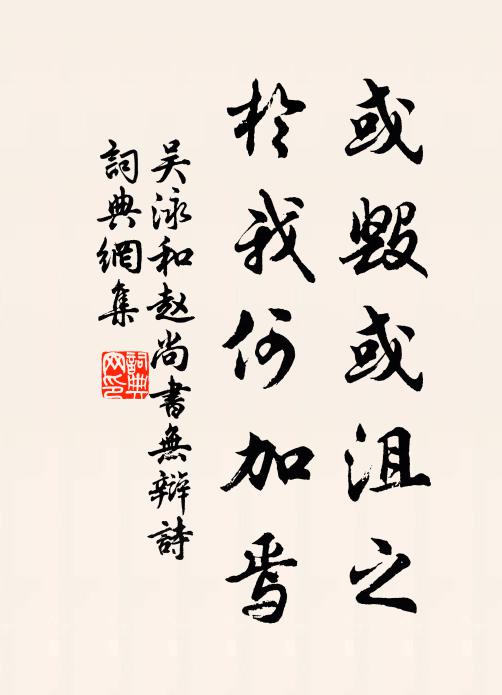 或毁或沮之
於我何加焉
吴泳和赵尚書無辯詩
詞典網集
詞典
网印